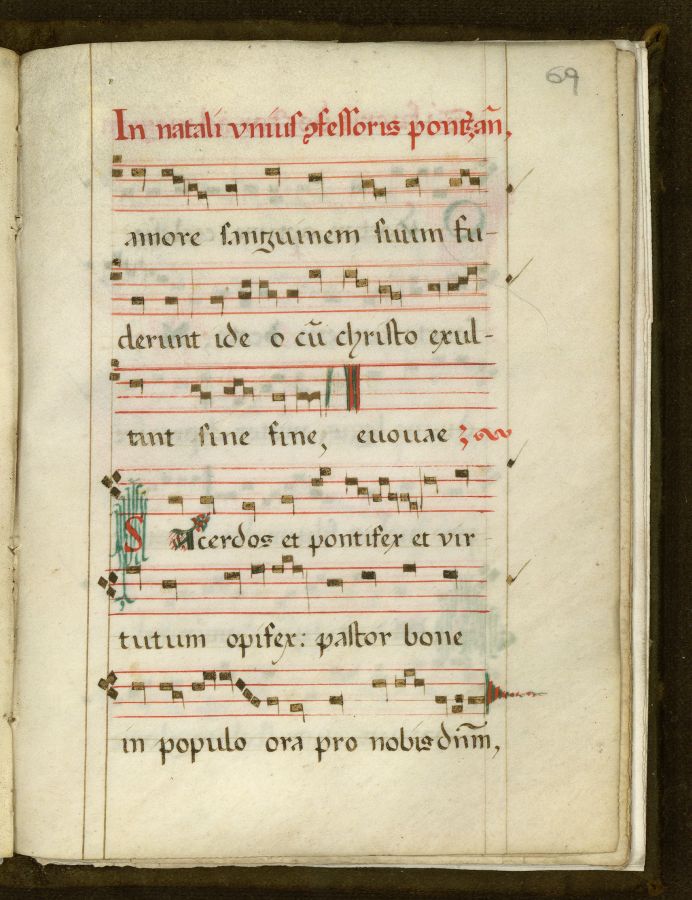 69
In natali vnius ꝯfessoris pont. an̄,
amore sanguinem suum fu-
derunt ide o cū christo exul-
tant sine fine, euouae
SAcerdos et pontifex et vir
tutum opifex: pastor bone
in populo ora pro nobis dn̄m,